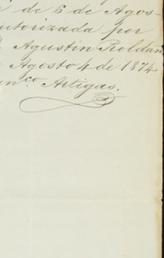 de 6 de Agos
autorizada por
Agustin Roldan
Agosto 4 de 1874.
an.co Artigas.